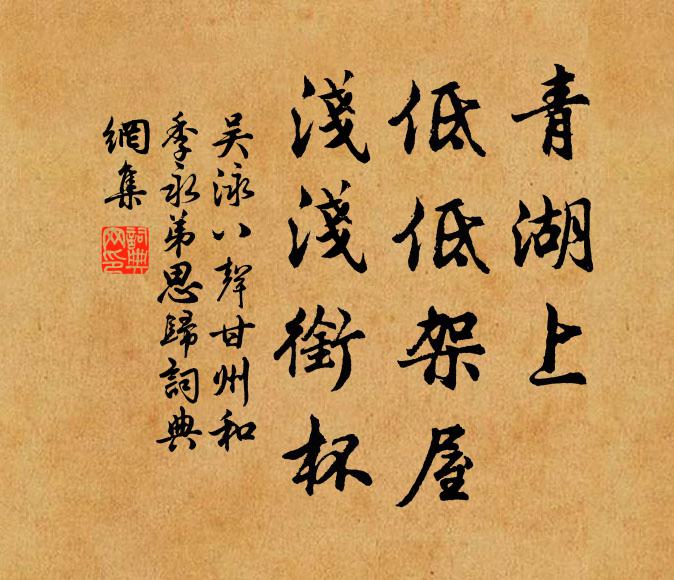 青湖上
低低架屋
淺淺銜杯
吴泳八聲甘州和
季永弟思歸詞典
網集
詞典
网印